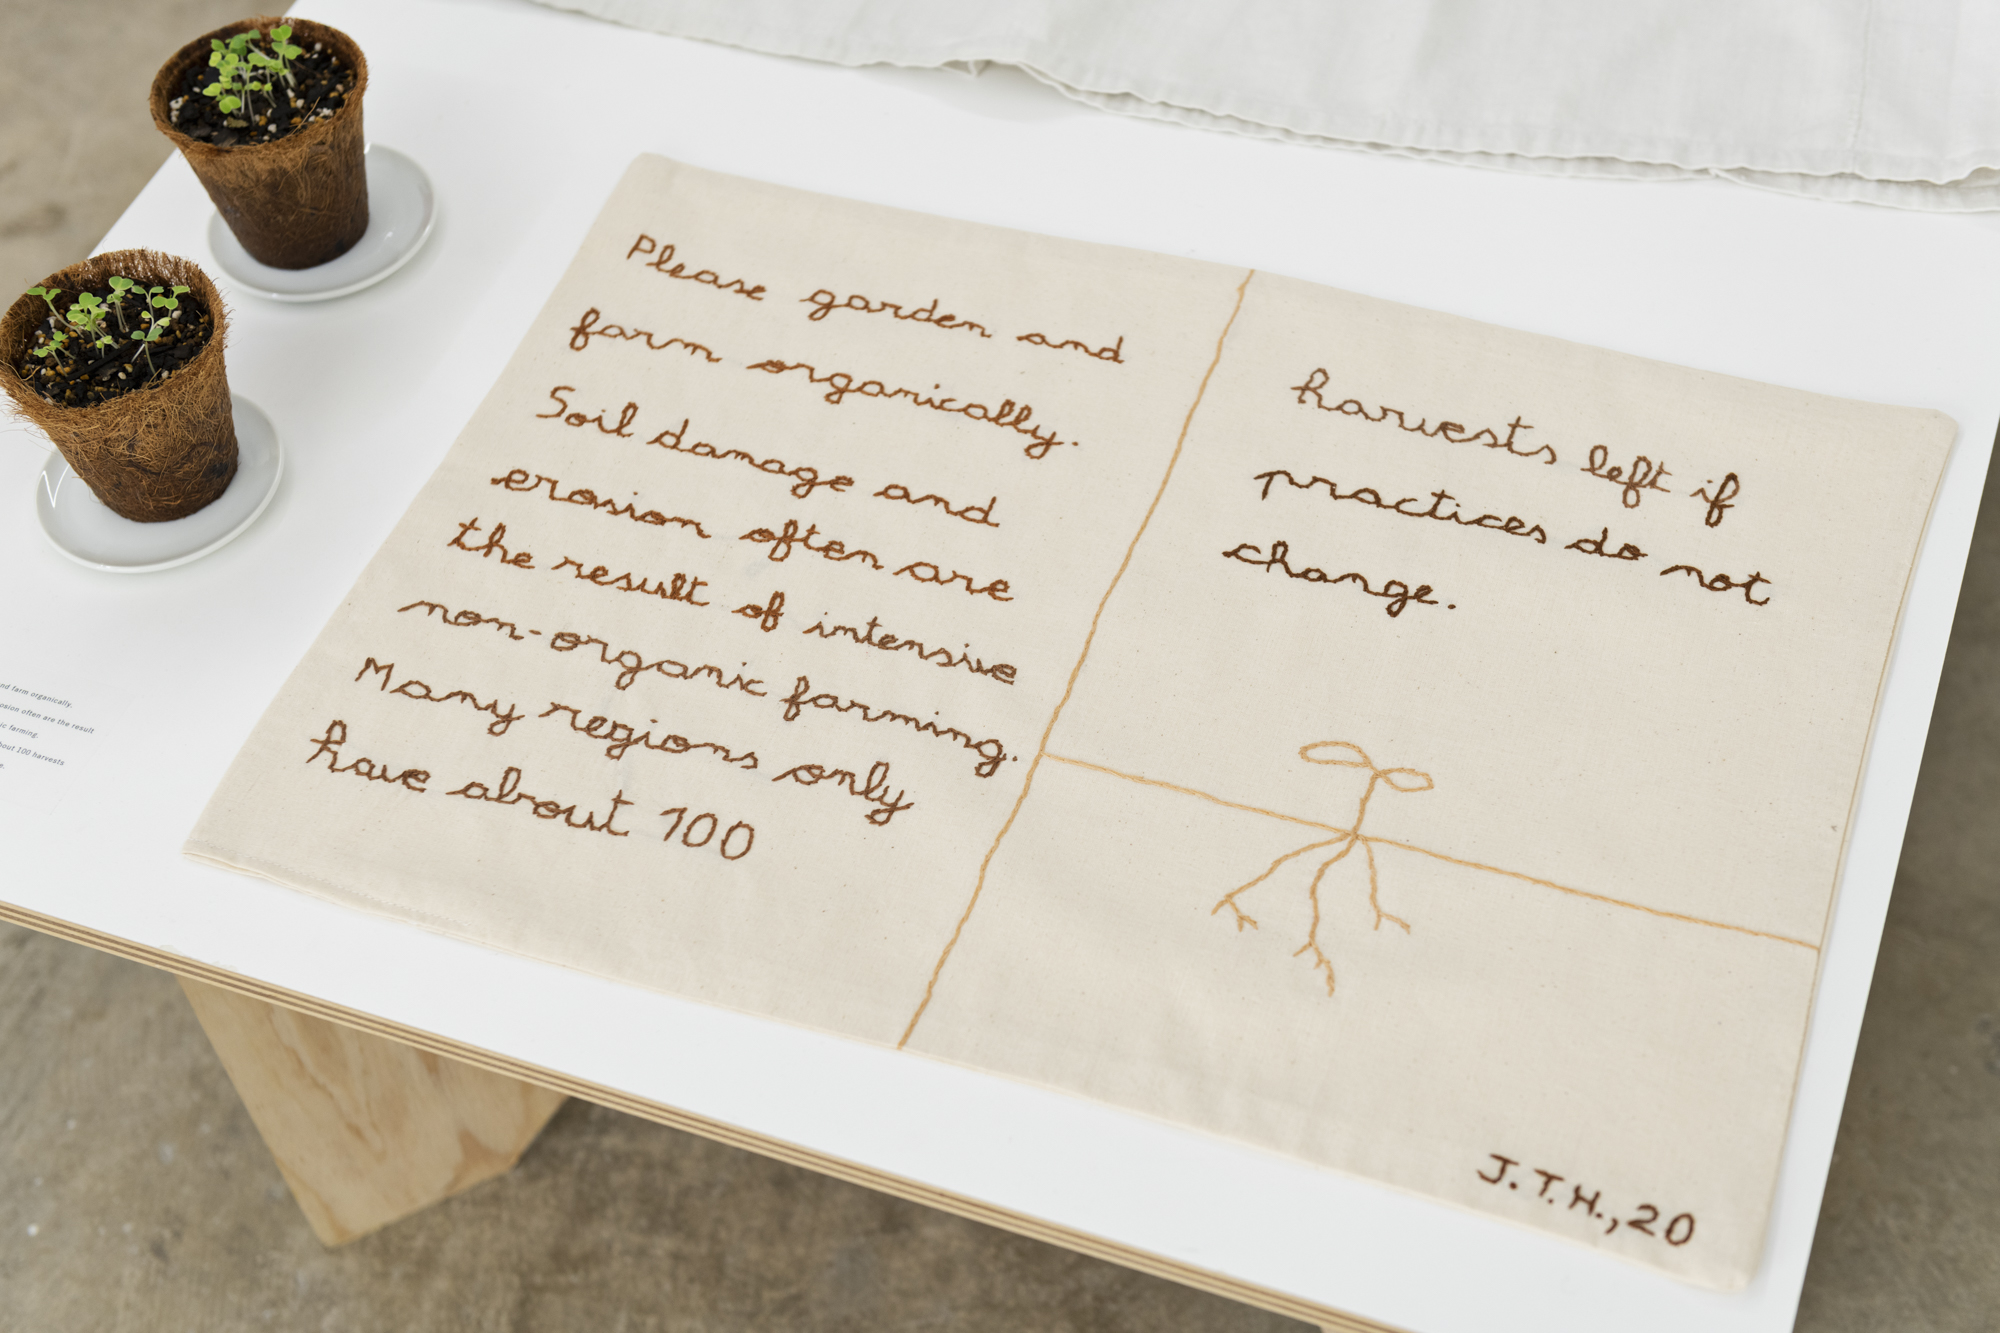 Please garden and
farm organically.
Soil damage and
erosion often are
the result of intensive
non-organic farming.
Many regions only
have about 100
harvests left if
practices do not
change.
J.T.H., 20
nd farm organically.
osion often are the result
ic farming.
bout 100 harvests
e.